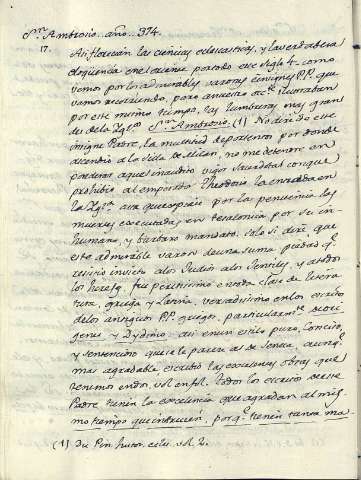 Sn Ambrosio.. año.. 374.
17. Asi florecian las ciencias eclesiasticas, y la verdadera
eloquencia en el oriente por todo este siglo 4.º como
vemos por los admirables varones e insignes P.P. que
vamos recorriendo, pero aun acá el occidente ilustraban
por este mismo tiempo, las lumbreras mas gran
des de la Yglesia Sn Ambrosio. (1) No diré de este
insigne Padre, la multitud de portentos por donde
ascendio a la silla de Milan, no me detendre en
ponderar aquel inaudito vigor sacerdotal con que
prohibió al emperador Theodosio la entrada en
la Yglesia asta que expiase por la penitencia las
muertes executadas en tesalonica por su in-
humano, y barbaro mandato. Solo si diré que
este admirable varon de una suma piedad que
resistio invicto a los Judios a los Gentiles, y a todos
los hereges fue peritissimo en toda clase de litera
tura griega y Latina, versadissimo en los escritos
de los antiguos P.P. griegos, particularmente de Ori
genes y Dydimo: asi en un estilo puro, conciso,
y sentencioso que le parece al de Seneca, aunque
mas agradable escribió las excelentes obras que
tenemos en dos vol. en fol. Todos los escritos de este
Padre tienen la excelencia que agradan al mis-
mo tiempo que instruien, porque tienen tanta ma
(1) Du Pin histor. eclea. vol. 2.